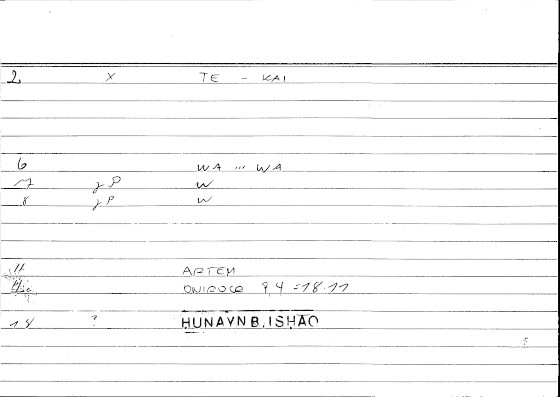 2, x TE - KAI
6 WA ... WA
7 γP W
8 γP W
11 ARTEM
ONIROCO 9,4 = 18.11
14 ? HUNAYN B. ISHAQ